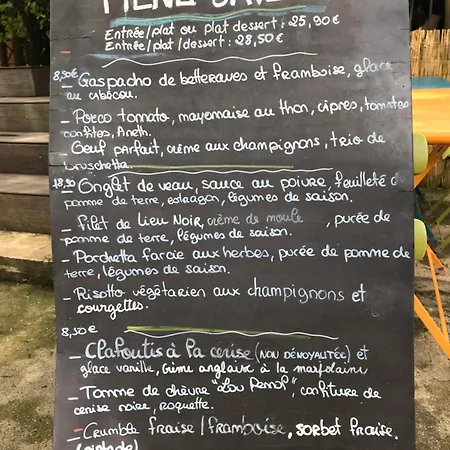 MENU
Entrée/plat ou plat dessert : 25,90€
Entrée/plat/dessert : 28,50€
8,50€ - Gaspacho de betteraves et framboise, glace
au cibécou.
- Porco tomato, mayonnaise au thon, cipres, tomates
confites, Aneth.
Oeuf parfait, crème aux champignons, trio de
bruschetta
18,90 - Onglet de veau, sauce au poivre, feuilleté de
pomme de terre, estragon, légumes de saison.
- filet de Lieu Noir, crème de moule , purée de
pomme de terre, légumes de saison.
- Porchetta farcie aux herbes, purée de pomme de
terre, légumes de saison.
- Risotto végétarien aux champignons et
courgettes.
8,50€
- Clafoutis à la cerise (NON DÉNOYAUTÉE) et
glace vanille, crème anglaise à la marjolaine
- Tomme de chèvre "Lou Penol", confiture de
cerise noire, roquette.
- Crumble fraise / framboise, sorbet fraise.